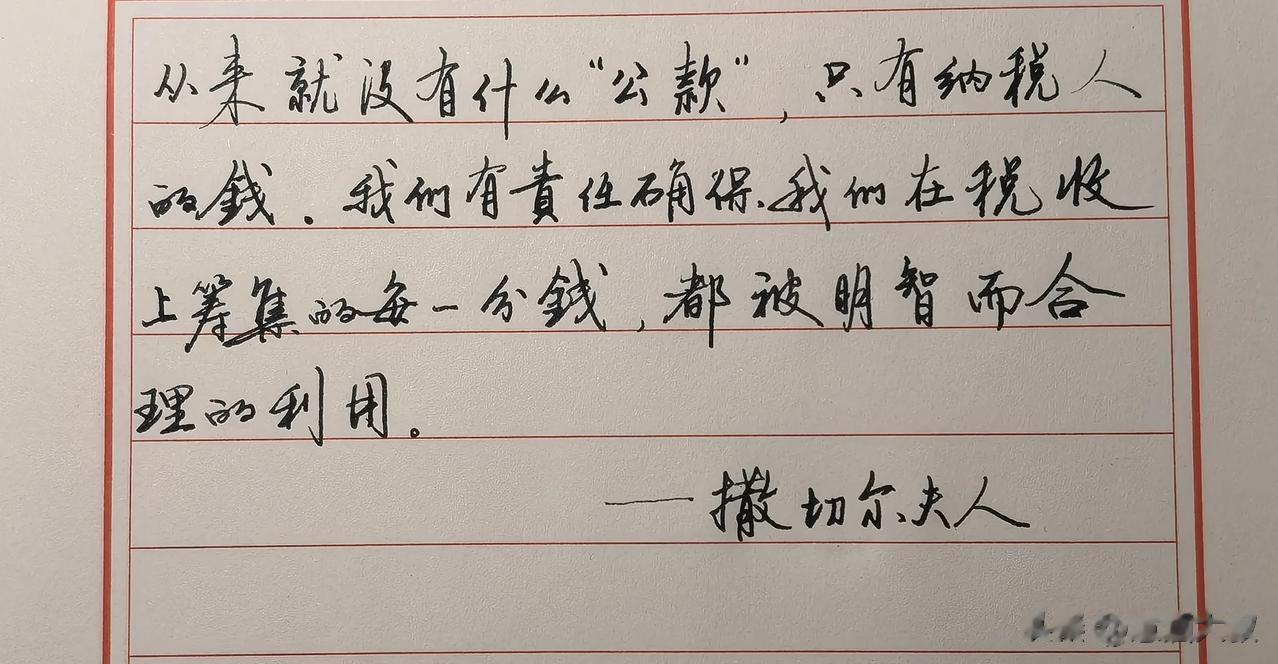 从来就没有什么“公款”，只有纳税人
的錢．我们有責任确保、我们在税收
上筹集的每一分錢，都被明智而合
理的利用。
——撒切尔夫人